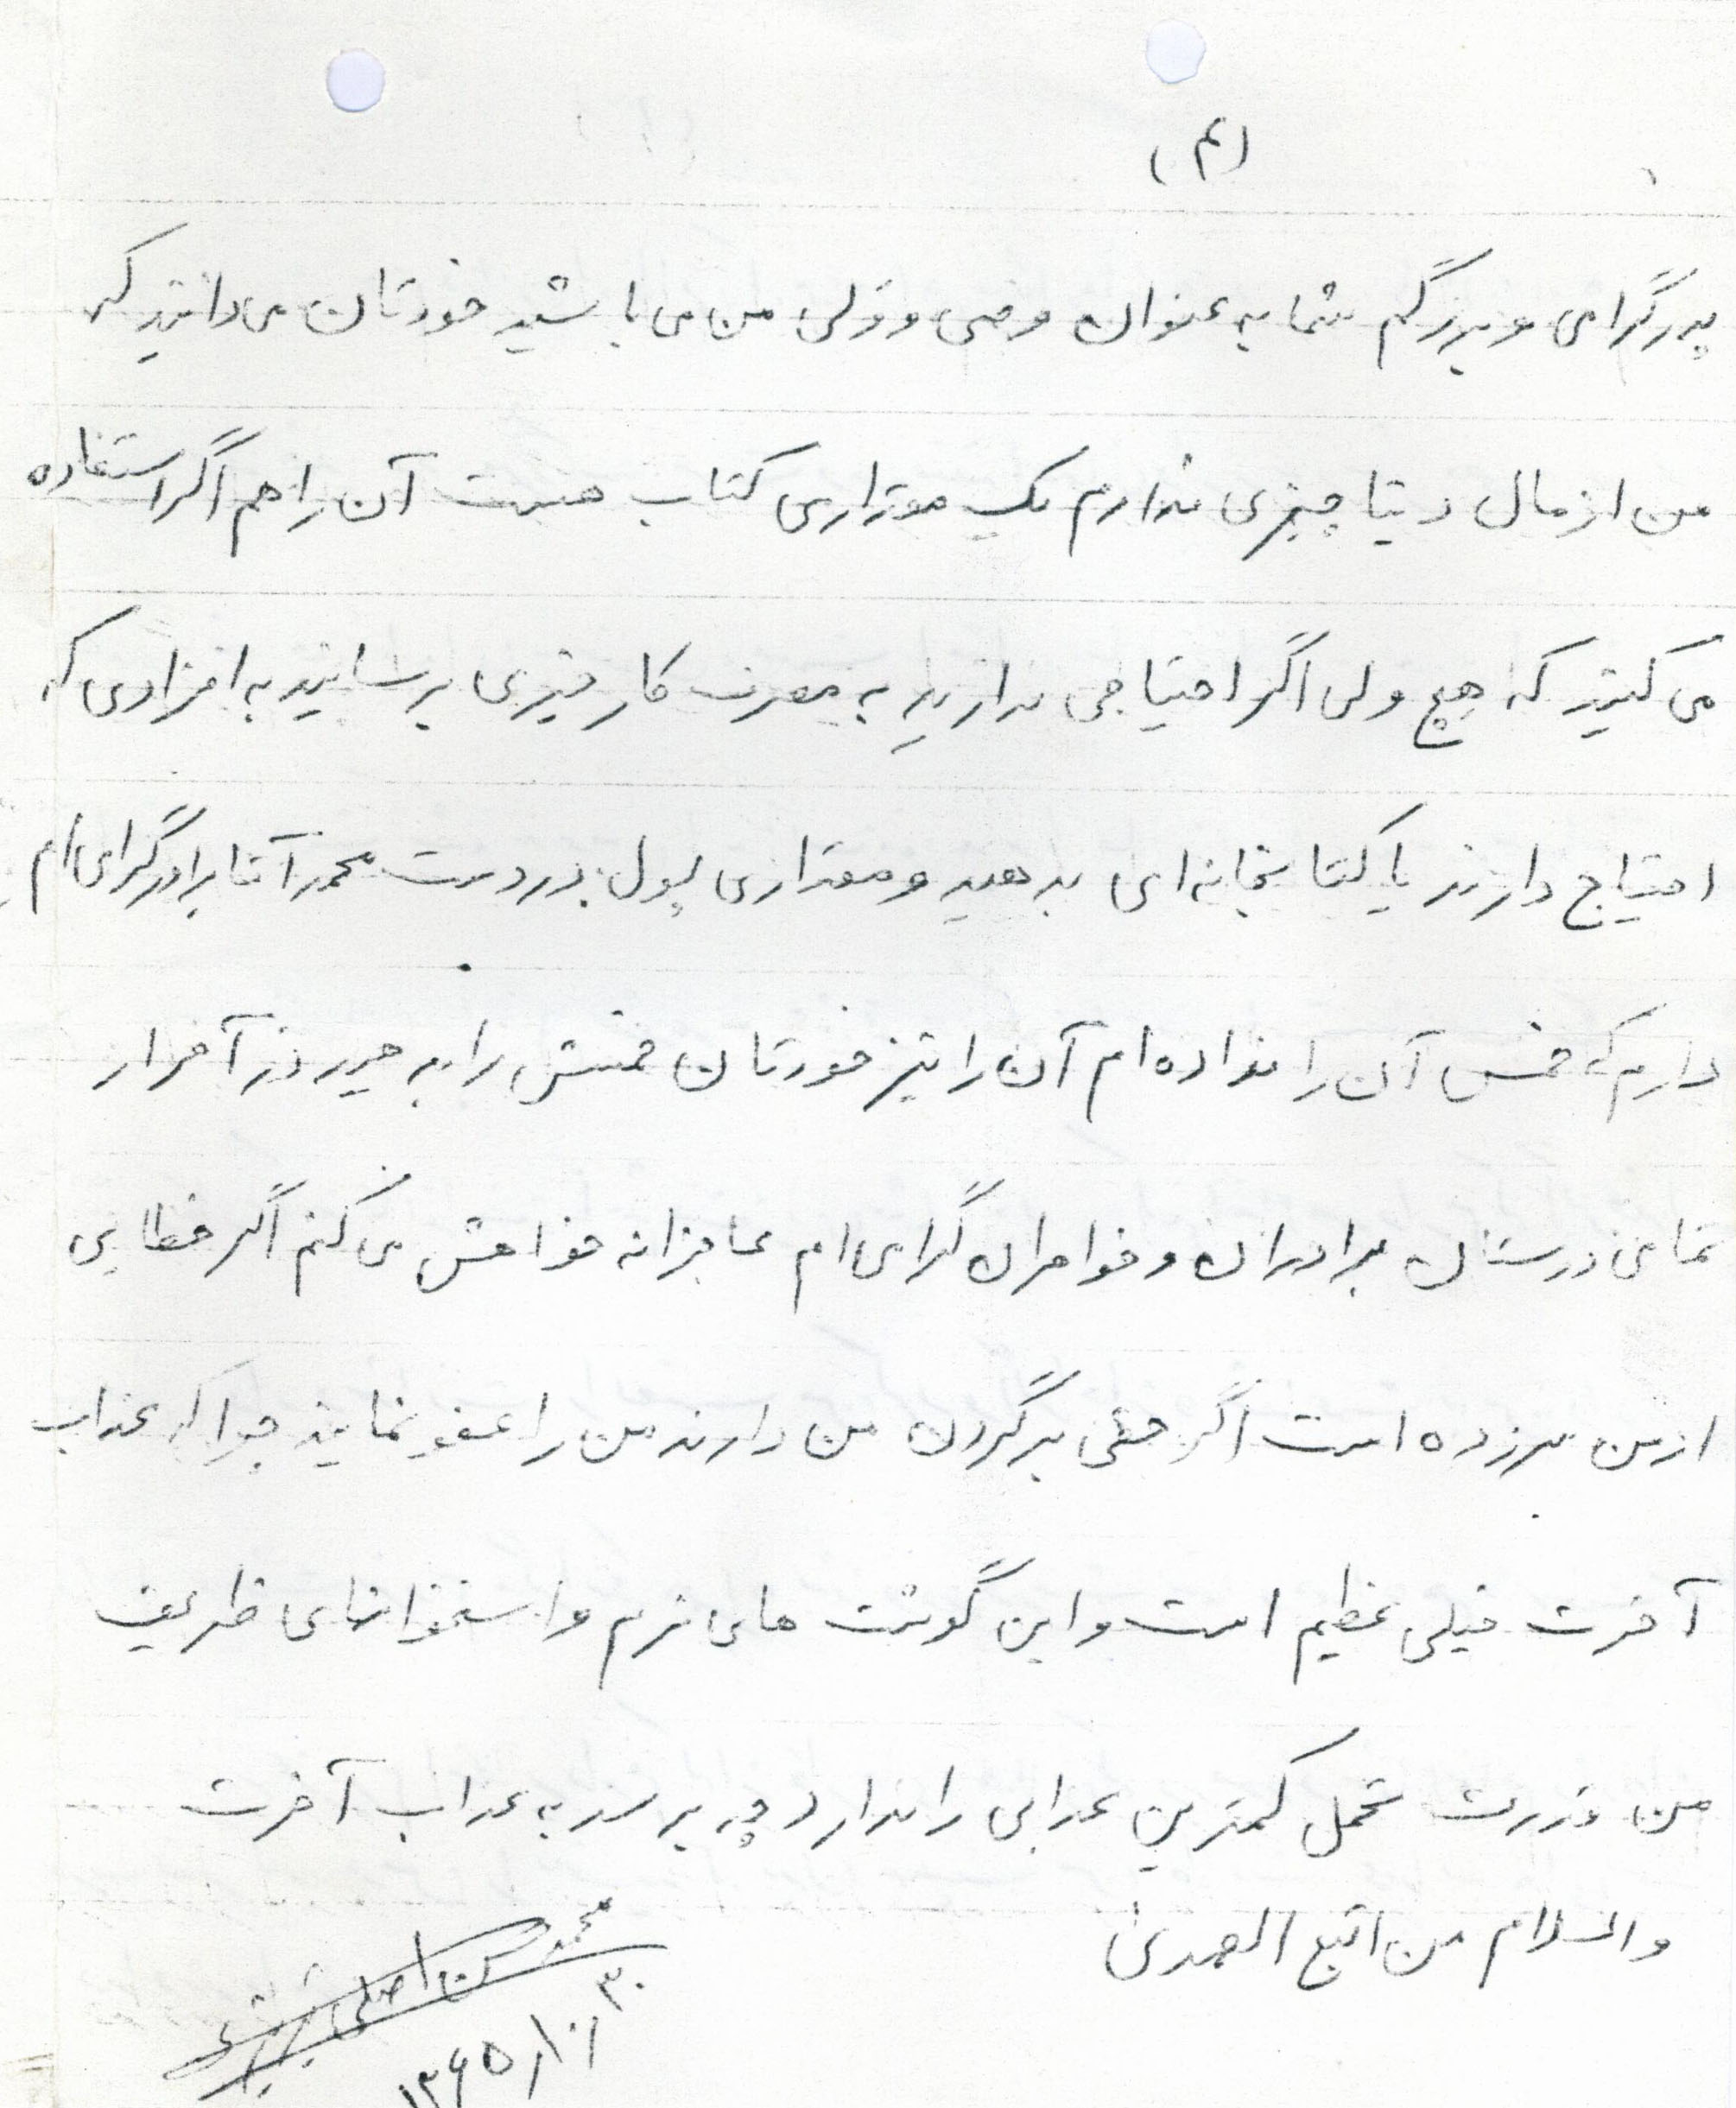 (۴)
پدر گرامی و بزرگم شما به عنوان وصی و ولی من می باشید خودتان می دانید که
من از مال دنیا چیزی ندارم یک مقداری کتاب هست آن را هم اگر استفاده
می کنید که هیچ ولی اگر احتیاجی ندارید به مصرف کار خیری برسانید به افرادی که
احتیاج دارند یا کتابخانه ای بدهید و مقداری پول در دست محمد آقا برادر گرامی ام
دارم که خمس آن را نداده ام آن را نیز خودتان خمسش را بدهید در آخر از
تمامی دوستان برادران و خواهران گرامی ام عاجزانه خواهش می کنم اگر خطایی
از من سرزده است اگر حقی بر گردن من دارند من را عفو نمایند چرا که عذاب
آخرت خیلی عظیم است و این گوشت های نرم و استخوانهای ظریف
من قدرت تحمل کمترین عذابی را ندارد چه برسد به عذاب آخرت
والسلام من اتبع الهدی
محمد حسن اصلی
۱۳۶۵/۱۰/۳۰